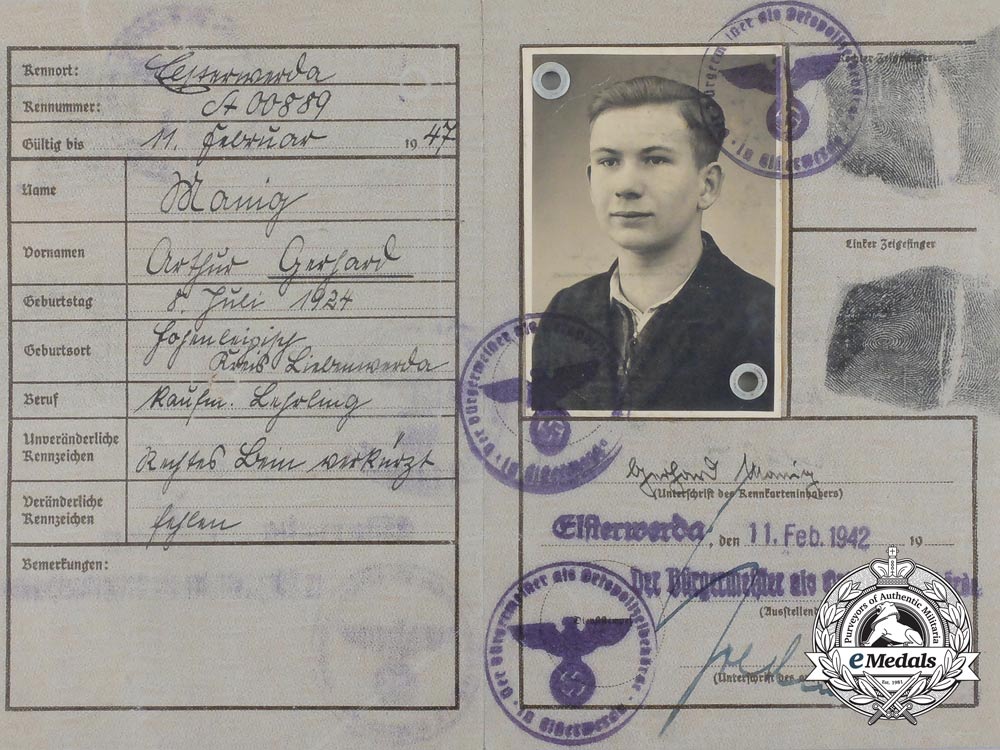 Kennort: Elsterwerda
Kennummer: A 00889
Gültig bis 11. Februar 1947
Name Manig
Vornamen Arthur Gerhard
Geburtstag 8. Juli 1924
Geburtsort Hohenleipisch
Kreis Liebenwerda
Beruf kaufm. Lehrling
Unveränderliche Kennzeichen Rechtes Bein verkürzt
Veränderliche Kennzeichen fehlen
Bemerkungen:
Der Bürgermeister als Ortspolizeibehörde
in Elsterwerda
Rechter Zeigefinger
Linker Zeigefinger
Der Bürgermeister als
in Elsterwerda
Gerhard Manig
(Unterschrift des Kennkarteninhabers)
Elsterwerda, den 11. Feb. 1942 19
Der Bürgermeister als
(Ausstellende
Der Bürgermeister als Ortspolizeibehörde
in Elsterwerda
Dienststempel
(Unterschrift des
Purveyors of Authentic Militaria
eMedals
Est. 1981